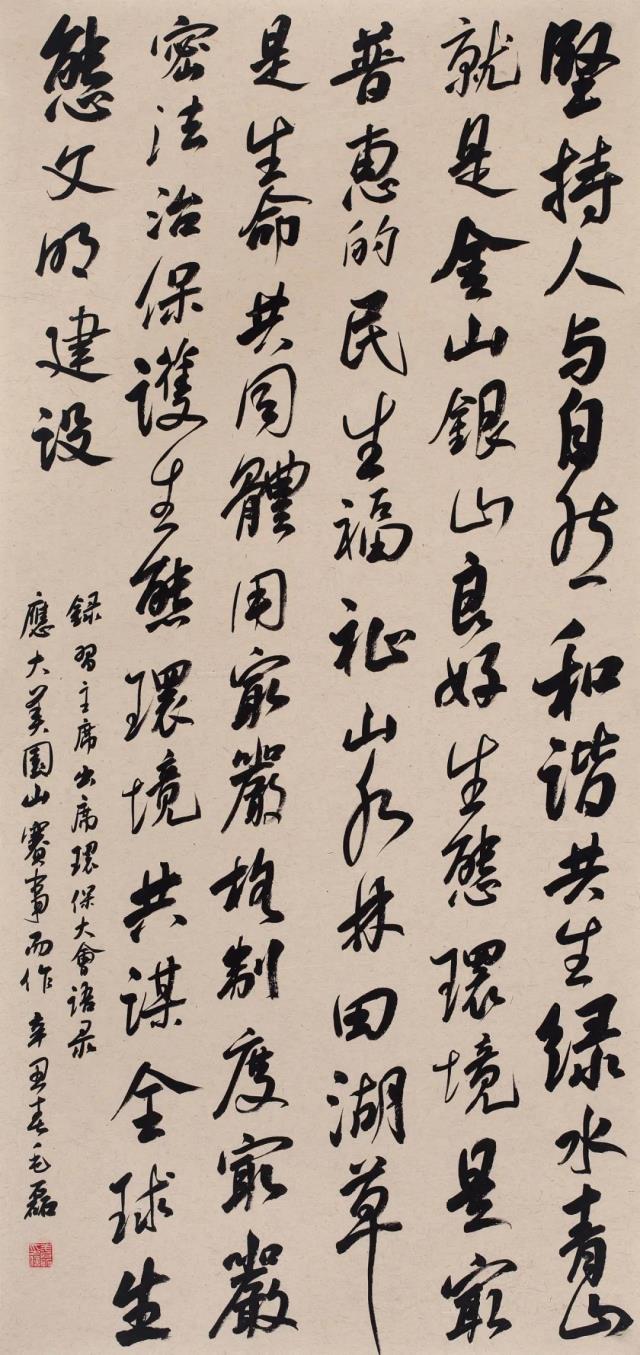 堅持人与自然和谐共生绿水青山
就是金山銀山良好生態環境是冣
普惠的民生福祉山水林田湖草
是生命共同體用冣嚴格制度冣嚴
密法治保護生態環境共謀全球生
態文明建设
録習主席出席環保大會語录
應大美圖山賽事而作辛丑春毛磊